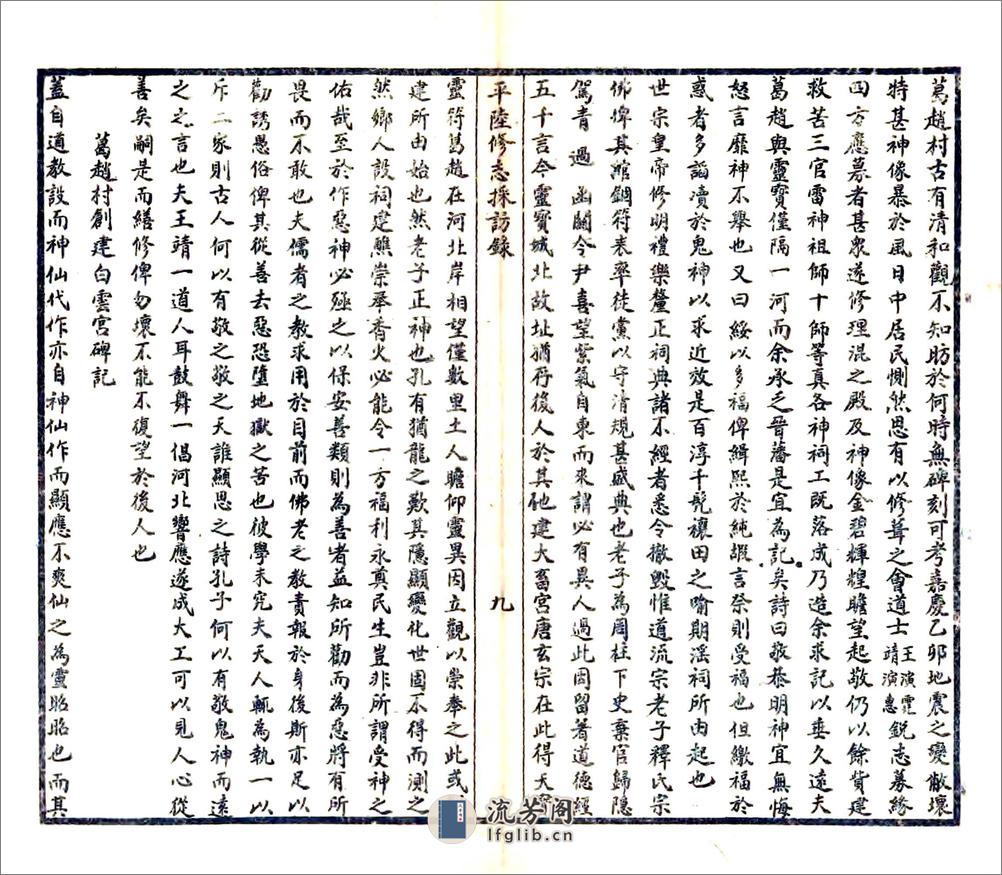 葛趙村古有清和觀不知昉於何時無碑刻可考嘉慶乙卯地震之變敝壞
特甚神像暴於風日中居民惻然思有以修葺之會道士王演霓靖演惠銳志募緣
四方應募者甚衆遂修理混之殿及神像金碧輝煌瞻望起敬仍以餘貲建
救苦三官雷神祖師十師等真各神祠工既落成乃造余求記以垂久遠夫
葛趙與靈寶僅隔一河而余承乏晉藩是宜為記矣詩曰敬恭明神宜無悔
怒言靡神不舉也又曰綏以多福俾緝熙於純嘏言祭則受福也但繳福於
惑者多謟瀆於鬼神以求近效是百淳于髡禳田之喻期滛祠所由起也
世宗皇帝修明禮樂釐正祠典諸不經者悉令撤毀惟道流宗老子釋氏宗
佛俾其綰錮符表率徒黨以守清規甚盛典也老子為周柱下史棄官歸隱
駕青過函關令尹喜望紫氣自東而來謂必有異人過此因留著道德經
五千言今靈寶城北故址猶存後人於其他建大畜宮唐玄宗在此得天寶
平陸修志採訪錄
九
靈符葛趙在河北岸相望僅數里土人瞻仰靈異因立觀以崇奉之此或
建所由始也然老子正神也孔有猶龍之歎其隱顯變化世固不得而測之
然鄉人設祠建醮崇奉香火必能令一方福利永奠民生豈非所謂受神之
佑哉至於作惡神必殛之以保安善類則為善者益知所勸而為惡將有所
畏而不敢也夫儒者之教求用於目前而佛老之教責報於身後斯亦足以
勸誘愚俗俾其從善去惡恐墮地獄之苦也彼學未究夫天人輒為執一以
斥二家則古人何以有敬之敬之天誰顯思之詩孔子何以有敬鬼神而遠
之之言也夫王靖一道人耳鼓舞一倡河北響應遂成大工可以見人心從
善矣嗣是而繕修俾勿壞不能不復望於後人也
葛趙村創建白雲宮碑記
蓋自道教設而神仙代作亦自神仙作而顯應不爽仙之為靈昭昭也而其
流芳阁
lfglib.cn